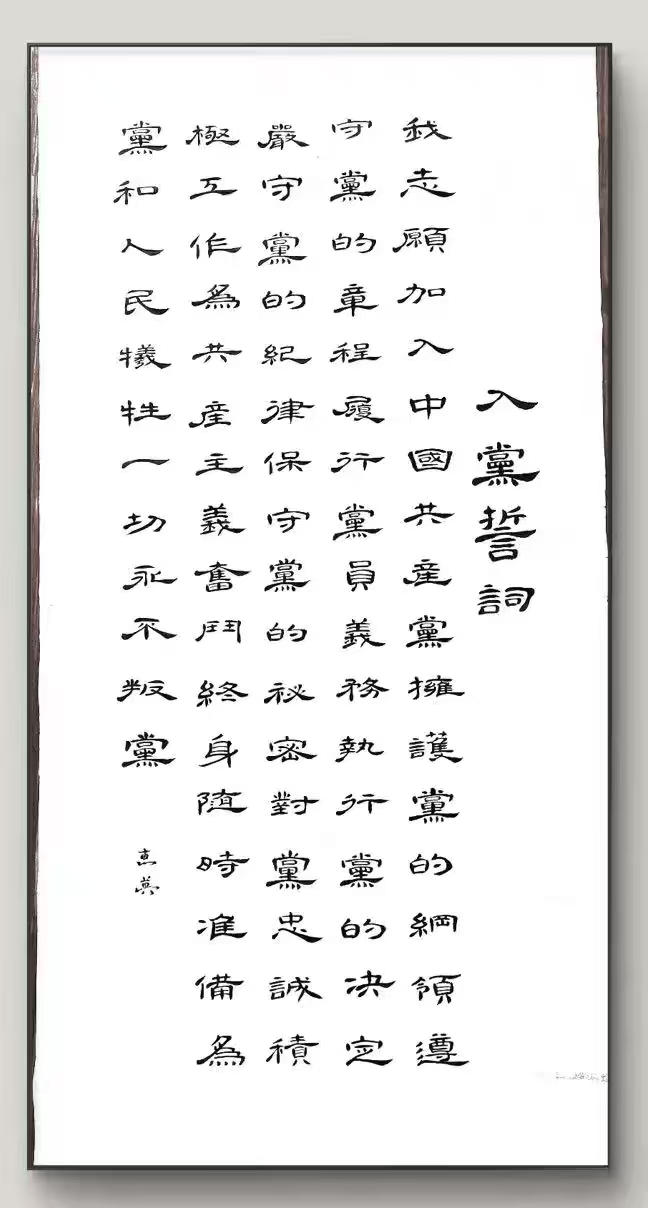 入黨誓詞
我志願加入中國共産黨擁護黨的綱領遵
守黨的章程履行黨員義務執行黨的决定
嚴守黨的紀律保守黨的祕密對黨忠誠積
極工作爲共産主義奮鬥終身隨時准備爲
黨和人民犧牲一切永不叛黨